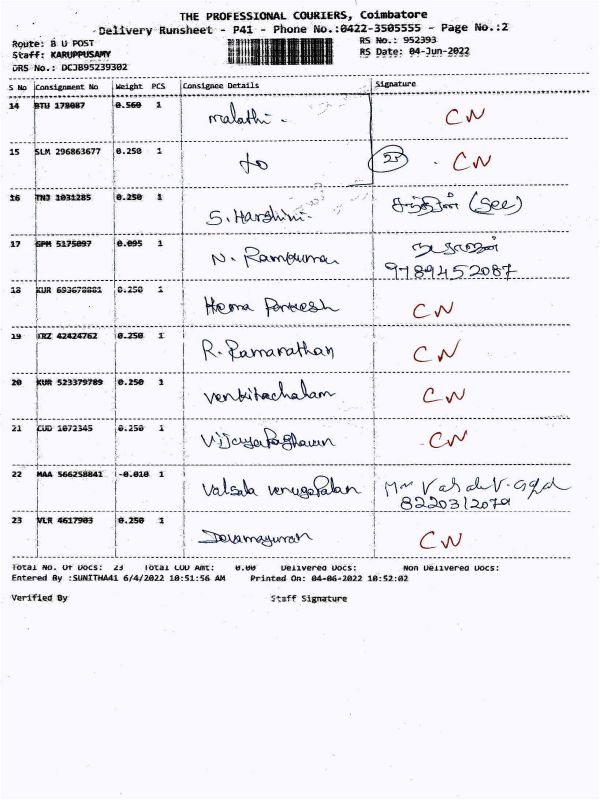 THE PROFESSIONAL COURIERS, Coimbatore
Delivery Runsheet - P41 - Phone No.:0422-3505555 - Page No.:2
Route: B U POST RS No.: 952393
Staff: KARUPPUSAMY RS Date: 04-Jun-2022
DRS No.: DCJB95239302
S No Consignment No Weight PCS Consignee Details Signature
14 BTU 178087 0.560 1 Malathi. CN
15 SLM 296863677 0.250 1 to 25 CN
16 TNJ 1031285 0.250 1 S. Harshini. (See)
17 GPM 5175097 0.095 1 N. Ramkumar நடராஜன்
9789452087
18 KUR 693678881 0.250 1 Hema CN
19 TRZ 42424762 0.250 1 R. Ramanathan CN
20 KUR 523379789 0.250 1 Venkitachalam CN
21 CUD 1072345 0.250 1 VijayaRaghavan CN
22 MAA 566258841 -0.010 1 Valsala Venugopalan
8220312079
23 VLR 4617903 0.250 1 CN
Total No. Of Docs: 23 Total COD Amt: 0.00 Delivered Docs: Non Delivered Docs:
Entered By :SUNITHA41 6/4/2022 10:51:56 AM Printed On: 04-06-2022 10:52:02
Verified By Staff Signature